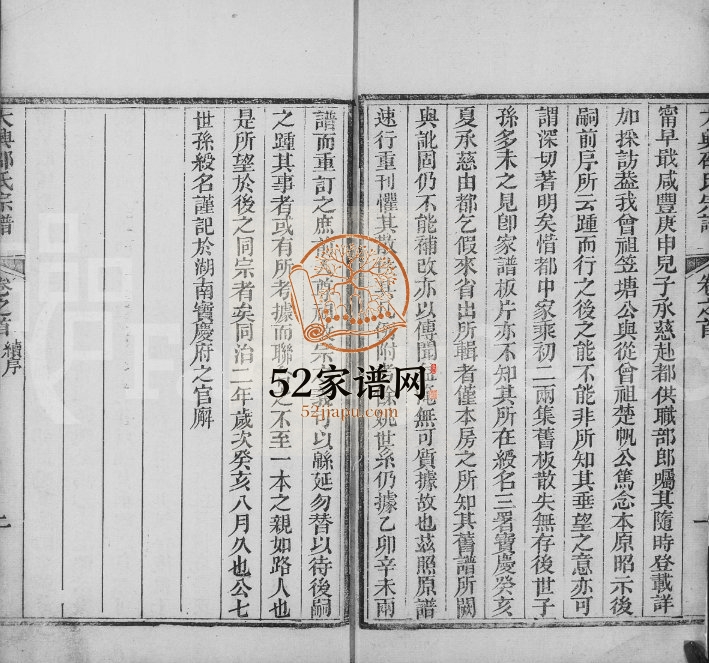 甯早最咸豐庚申兒子承慈赴都供職部郎囑其隨時登載詳
加採訪葢我曾祖笠塘公與從曾祖楚帆公篤念本原昭示後
嗣前序所云踵而行之後之能不能非所知其垂望之意亦可
謂深切著明矣惜都中家乘初二兩集舊板散失無存後世子
孫多未之見卽家譜板片亦不知其所在綬名三署寶慶癸亥
夏承慈由都乞假來省出所輯者僅本房之所知其舊譜所闕
與訛固仍不能補改亦以傳聞無可質據故也茲照原譜
速行重刊懼其散世系仍據乙卯辛未兩
大興邵氏宗譜
卷之首
一
譜而重訂之庶前可以緜延勿替以待後嗣
之踵其事者或有所考據而聯之不至一本之親如路人也
是所望於後之同宗者矣同治二年歲次癸亥八月久也公七
世孫綬名謹記於湖南寶慶府之官廨
大興邵氏宗譜
卷之首
續序
二
52家谱网
52jiapu.com